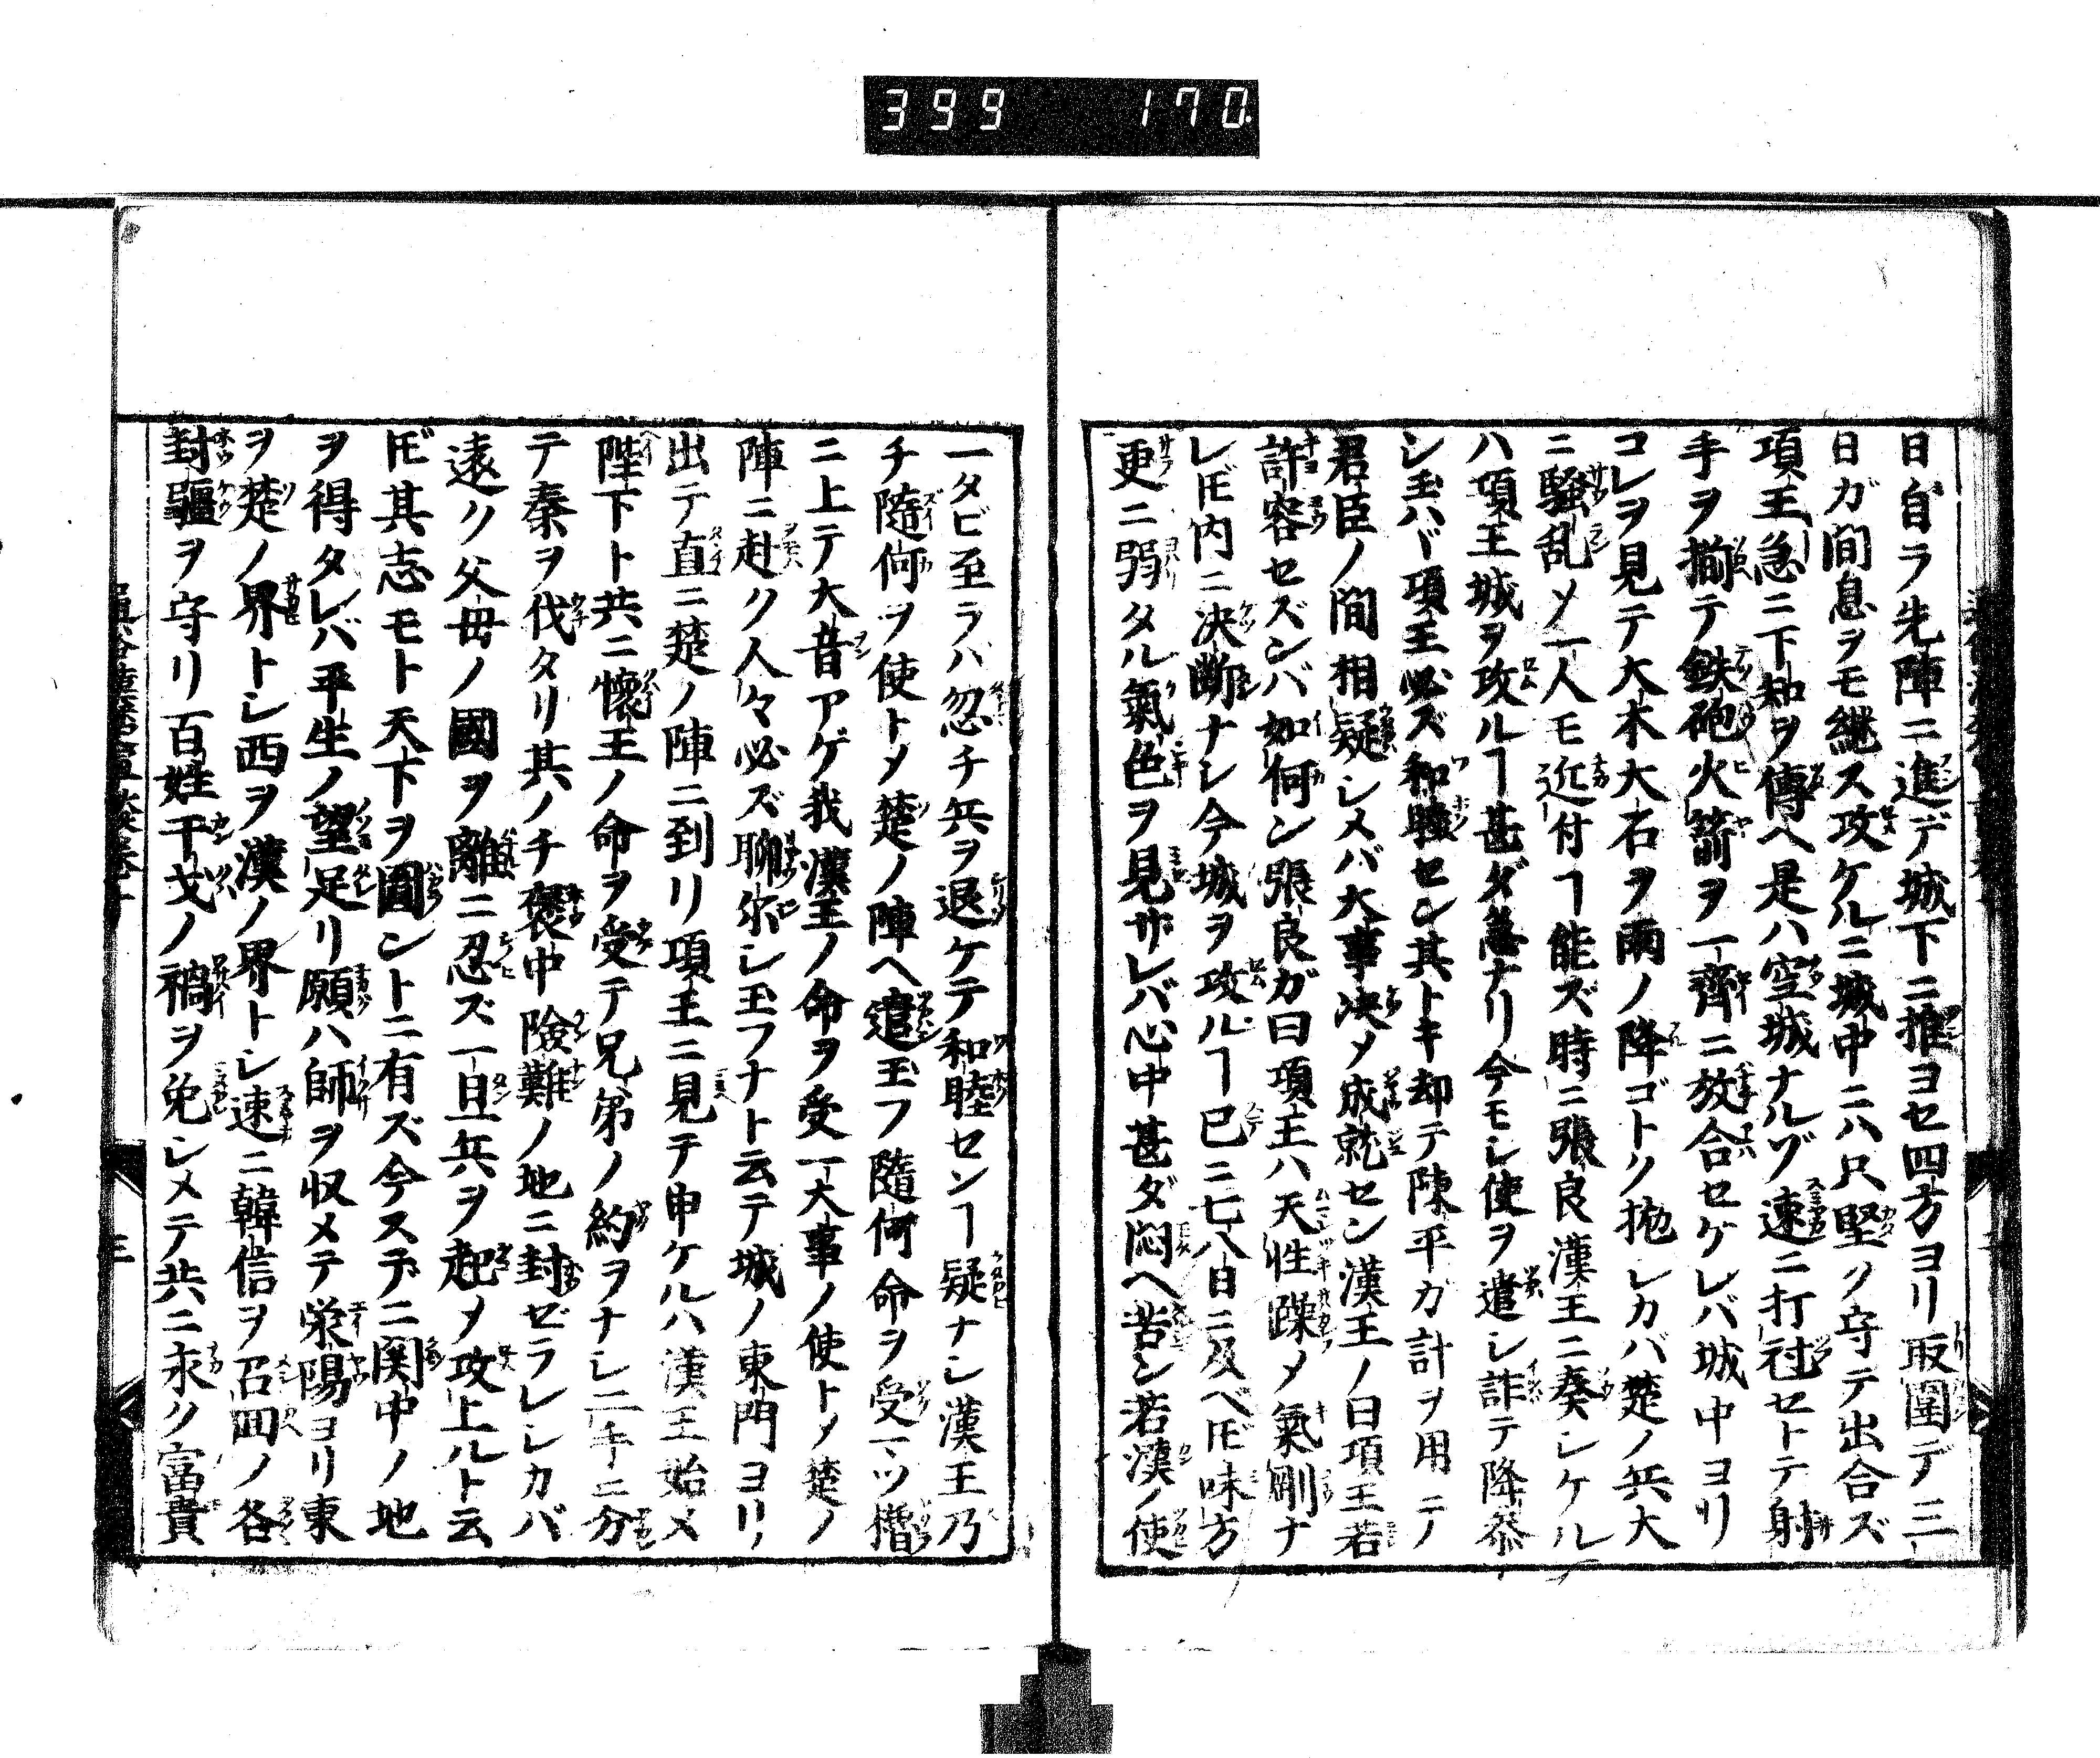 399 170
日自ラ先陣ニ進デ城下ニ推ヨセ四方ヨリ取圍デ三
日ガ間息ヲモ継ス攻ケルニ城中ニハ只堅ク守テ出合ズ
項王急ニ下知ヲ傳ヘ是ハ空城ナルゾ速ニ打過セトテ射
手ヲ揃テ鉄砲火箭ヲ一齊ニ放合セケレバ城中ヨリ
コレヲ見テ大木大石ヲ雨ノ降ゴトク抛レカバ楚ノ兵大
ニ騒乱メ一人モ近付ヿ能ズ時ニ張良漢王ニ奏シケル
ハ項王城ヲ攻ルヿ甚ダ急ナリ今モシ使ヲ遣シ詐テ降参
シ玉ハヾ項王必ズ和睦セン其トキ却テ陳平カ計ヲ用ニノ
君臣ノ間相疑シメバ大事決メ成就セン漢王ノ曰項王若
許容セズンバ如何ン張良ガ曰項王ハ天性躁メ氣剛ナ
レ𪜈内ニ决断ナシ今城ヲ攻ルヿ已ニ七八日ニ及ベ𪜈味方
更ニ弱タル氣色ヲ見ザレバ心中甚ダ悶ヘ苦ン若漢ノ使
一タビ至ラバ忽チ兵ヲ退ケテ和睦センヿ疑ナシ漢王乃
チ隨何ヲ使トメ楚ノ陣ヘ遣玉フ隨何命ヲ受一ツ楷
ニ上テ大音アゲ我漢王ノ命ヲ受一大事ノ使トメ楚ノ
陣ニ赴ク人々必ズ聊尓シ玉フナト云テ城ノ東門ヨリ
出テ直ニ楚ノ陣ニ到リ項王ニ見テ申ケルハ漢王始メ
陛下ト共ニ懷王ノ命ヲ受テ兄弟ノ約ヲナシ二手ニ分
テ秦ヲ伐タリ其ノチ褒中險難ノ地ニ封ゼラレシカバ
遠ク父母ノ國ヲ離ニ忍ズ一旦兵ヲ起メ攻上ルト云
𪜈其志モト天下ヲ圖ントニ有ズ今スデニ関中ノ地
ヲ得タレバ平生ノ望足リ願ハ師ヲ収メテ栄陽ヨリ東
ヲ楚ノ界トシ西ヲ漢ノ界トシ速ニ韓信ヲ召囬ノ各
封疆ヲ守リ百姓干戈ノ禍ヲ免シメテ共ニ永ク富貴
三